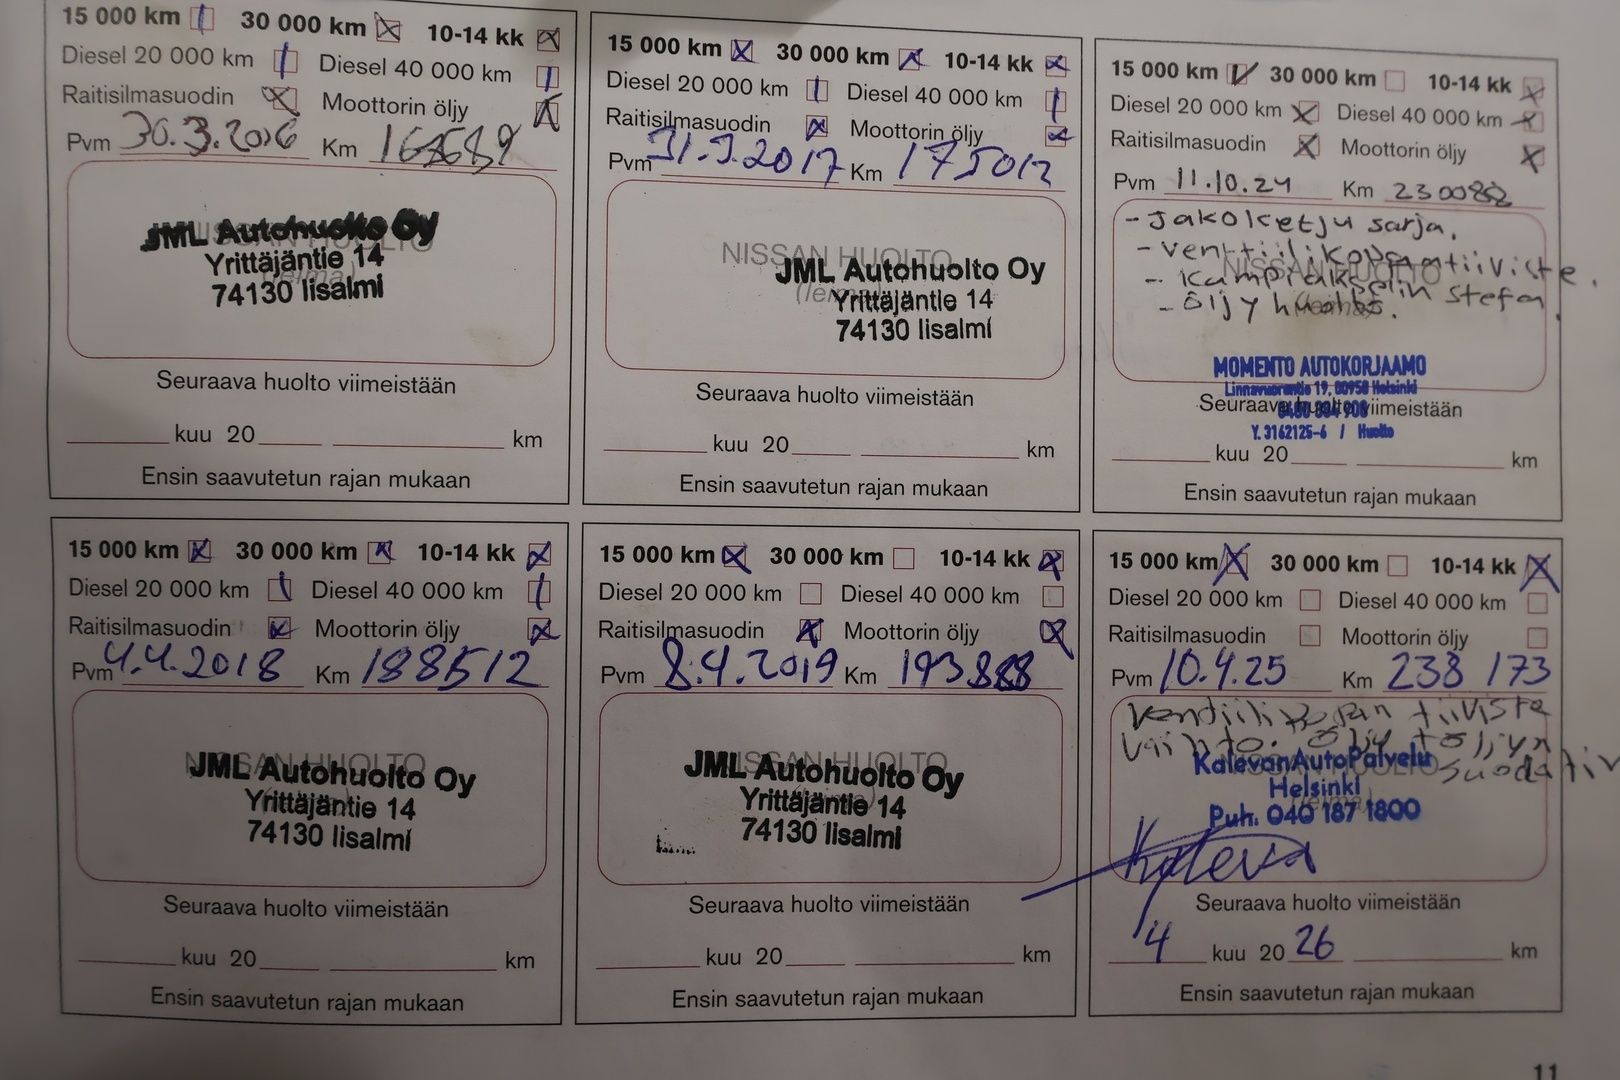 15 000 km 30 000 km 10-14 kk
Diesel 20 000 km Diesel 40 000 km
Raitisilmasuodin Moottorin öljy
Pvm 30.3.2016 Km
NISSAN HUOLTO
(leima)
JML Autohuolto Oy
Yrittäjäntie 14
74130 Iisalmi
Seuraava huolto viimeistään
kuu 20 km
Ensin saavutetun rajan mukaan
15 000 km 30 000 km 10-14 kk
Diesel 20 000 km Diesel 40 000 km
Raitisilmasuodin Moottorin öljy
Pvm 31.3.2017 Km 175012
NISSAN HUOLTO
(leima)
JML Autohuolto Oy
Yrittäjäntie 14
74130 Iisalmi
Seuraava huolto viimeistään
kuu 20 km
Ensin saavutetun rajan mukaan
15 000 km 30 000 km 10-14 kk
Diesel 20 000 km Diesel 40 000 km
Raitisilmasuodin Moottorin öljy
Pvm 11.10.24 Km
- Jakoketju sarja.
- venttiilikopan tiiviste.
- kampiakselin stefa.
- öljy huolto.
NISSAN HUOLTO
(leima)
MOMENTO AUTOKORJAAMO
Linnavuorentie 19, 00950 Helsinki
Seuraava huolto viimeistään
Y. 3162125-6 / Huolto
kuu 20 km
Ensin saavutetun rajan mukaan
15 000 km 30 000 km 10-14 kk
Diesel 20 000 km Diesel 40 000 km
Raitisilmasuodin Moottorin öljy
Pvm 4.4.2018 Km 188512
NISSAN HUOLTO
JML Autohuolto Oy
Yrittäjäntie 14
74130 Iisalmi
Seuraava huolto viimeistään
kuu 20 km
Ensin saavutetun rajan mukaan
15 000 km 30 000 km 10-14 kk
Diesel 20 000 km Diesel 40 000 km
Raitisilmasuodin Moottorin öljy
Pvm 8.4.2019 Km 193888
NISSAN HUOLTO
JML Autohuolto Oy
Yrittäjäntie 14
74130 Iisalmi
Seuraava huolto viimeistään
kuu 20 km
Ensin saavutetun rajan mukaan
15 000 km 30 000 km 10-14 kk
Diesel 20 000 km Diesel 40 000 km
Raitisilmasuodin Moottorin öljy
Pvm 10.4.25 Km 238 173
tiiviste
vaihto. öljy + öljyn
suodatin
NISSAN HUOLTO
(leima)
KalevanAutoPalvelu
Helsinki
Puh. 040 187 1800
Kaleva
Seuraava huolto viimeistään
4 kuu 20 26 km
Ensin saavutetun rajan mukaan
11